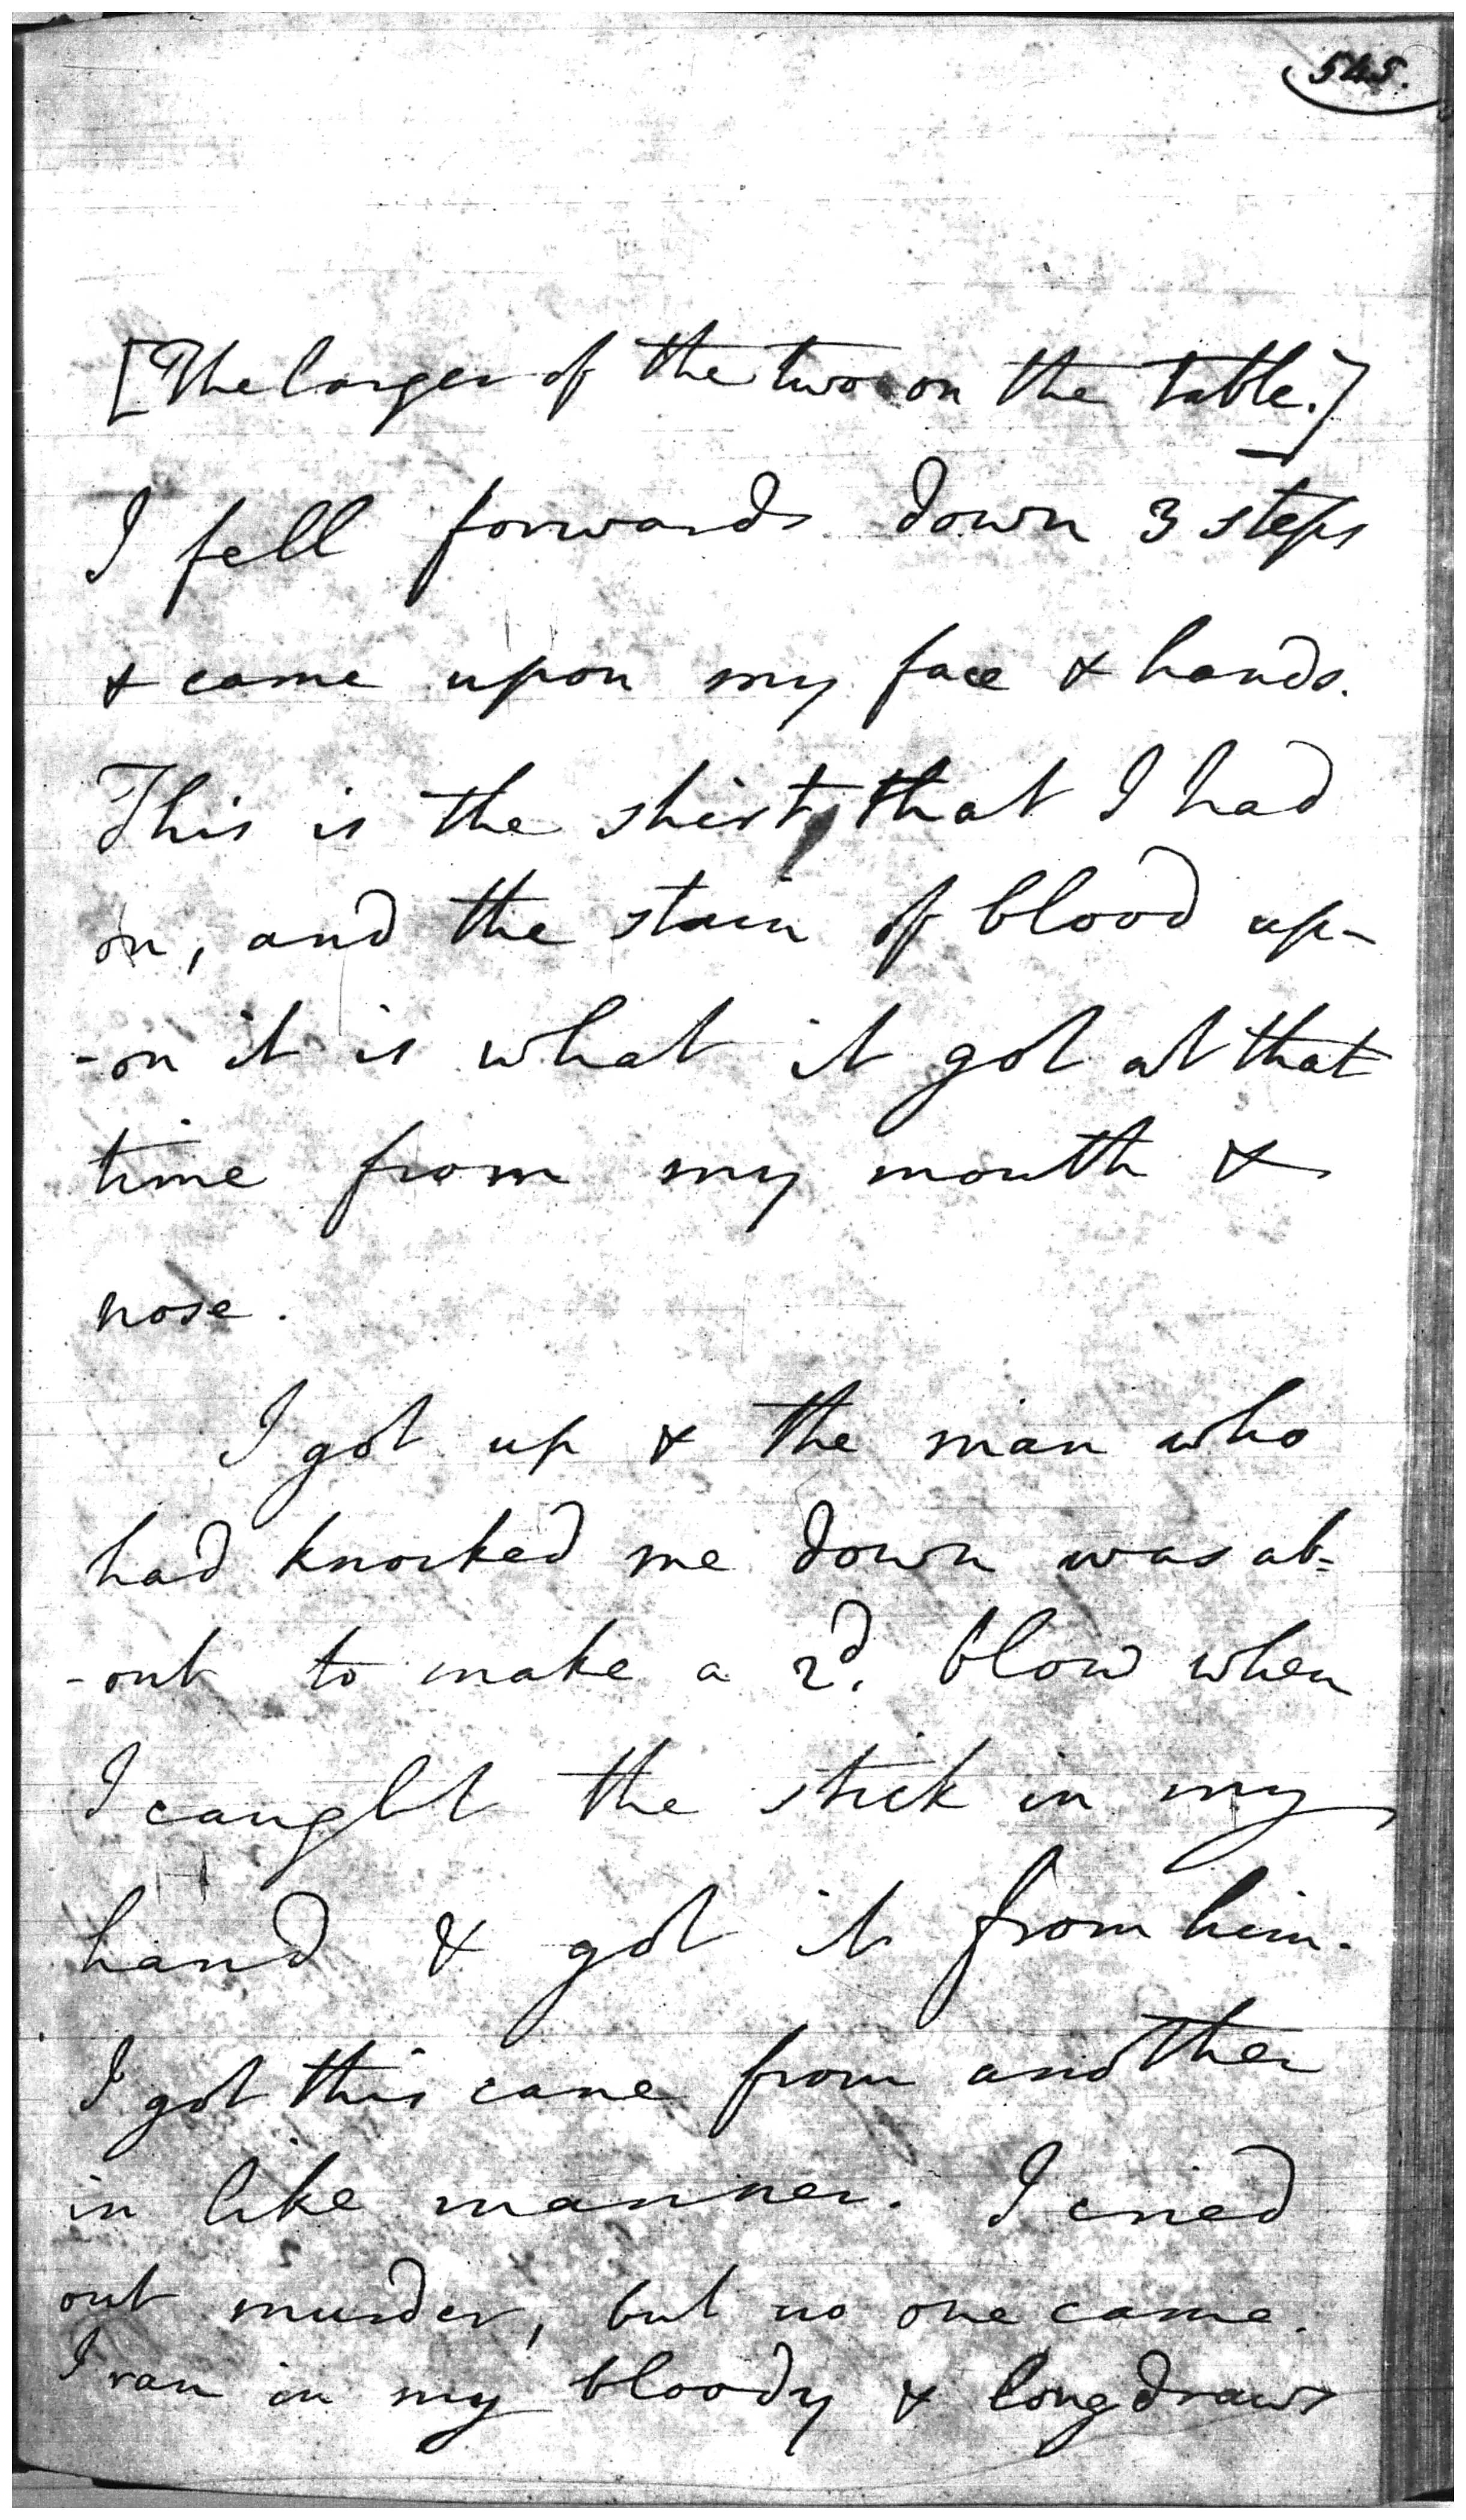 545.
[The larger of the two on the table.]
I fell forwards down 3 steps
& came upon my face & hands.
This is the shirt, that I had
on, and the stain of blood up-
-on it is what it got at that
time from my mouth &
nose.
I got up & the man who
had knocked me down was ab=
-out to make a 2d. blow when
I caught the stick in my
hand & got it from him.
I got this cane from another
in like manner. I cried
out murder, but no one came.
I ran in my bloody & long draws